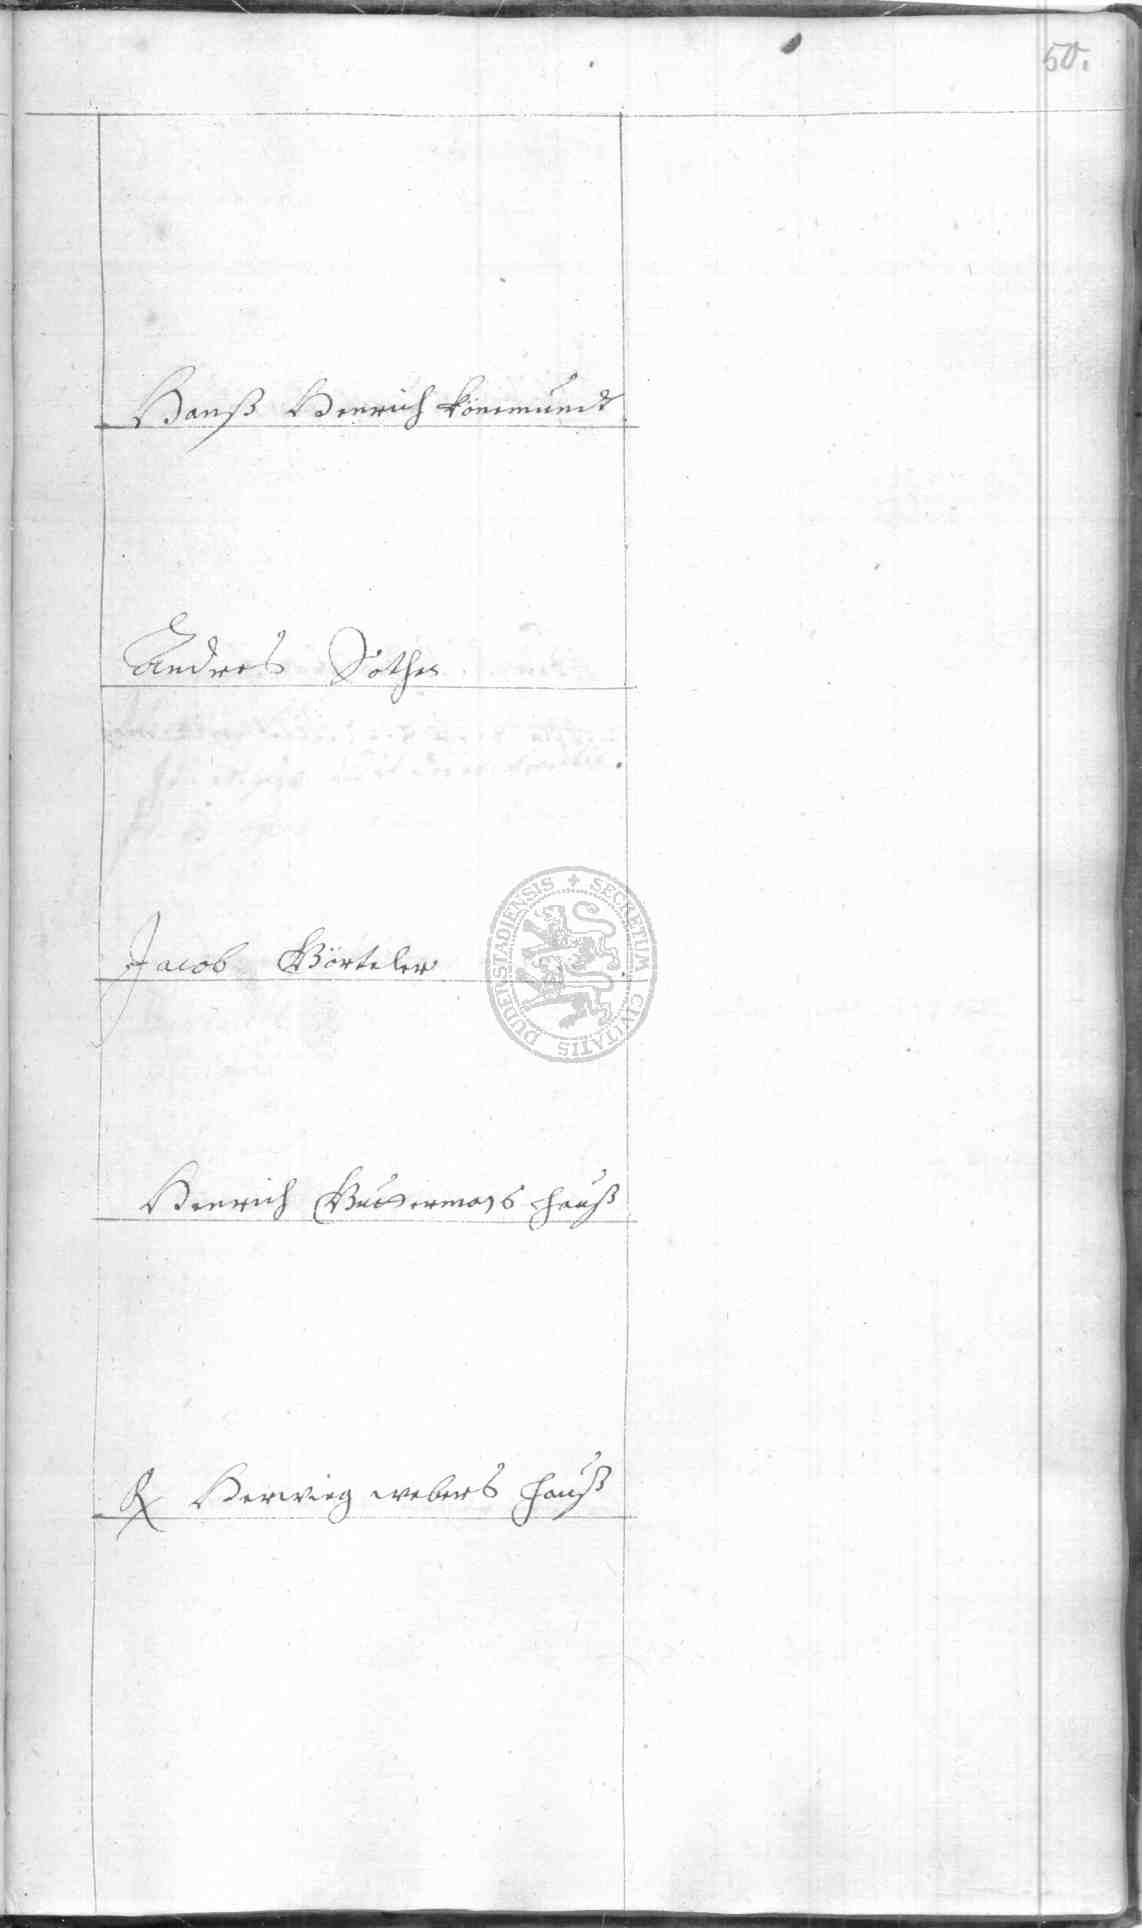 50.
Hanß Henrich Könemundt
Andres Söthe
Jacob Börteler
Henrich Bussermans Hauß
Herwieg webers Hauß
SECRETUM CIVITATIS DUDERSTADIENSIS